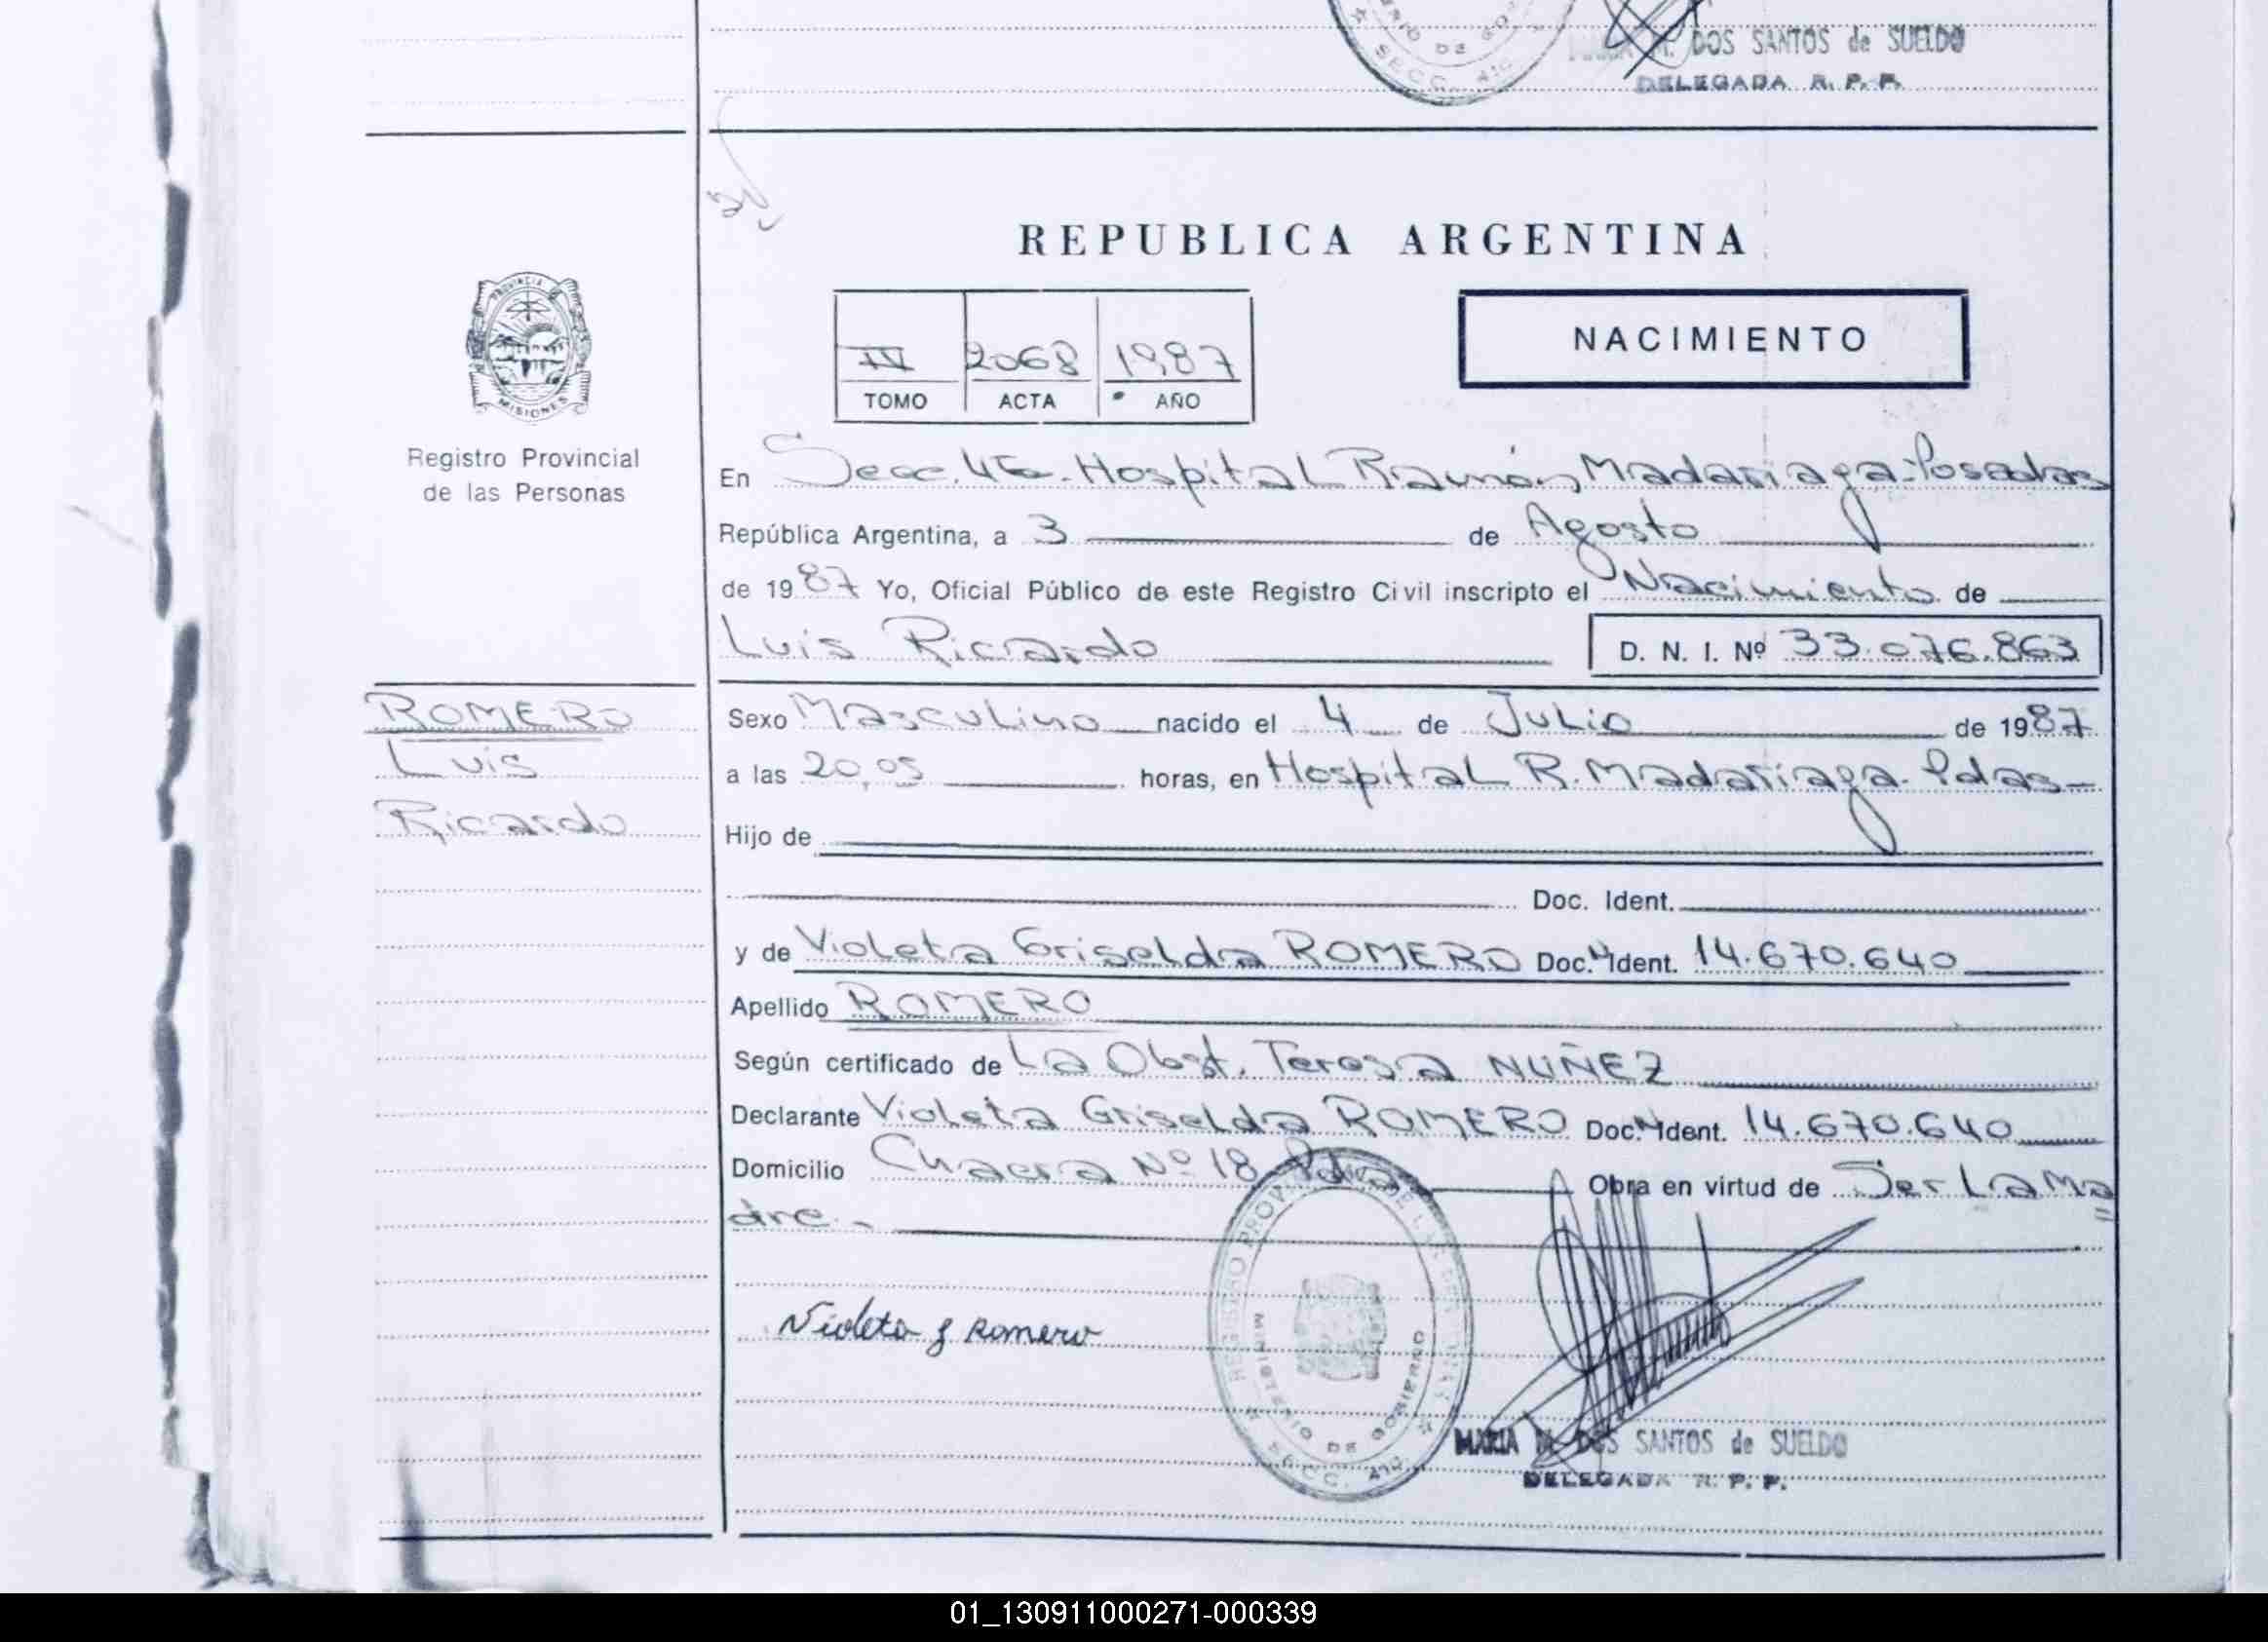 DOS SANTOS de SUELDO
DELEGADA R. P. P.
REPUBLICA ARGENTINA
PROVINCIA DE
MISIONES
Registro Provincial
de las Personas
IV 2068 1987
TOMO ACTA AÑO
NACIMIENTO
En Secc. 4ta. Hospital Ramón Madariaga-Posadas
República Argentina, a 3 de Agosto
de 1987 Yo, Oficial Público de este Registro Civil inscripto el Nacimiento de
Luis Ricardo D. N. I. Nº 33.076.863
ROMERO
Luis
Ricardo
Sexo Masculino nacido el 4 de Julio de 1987
a las 20,05 horas, en Hospital R. Madariaga. Pdas-
Hijo de
Doc. Ident.
y de Violeta Griselda ROMERO Doc. Ident. 14.670.640
Apellido ROMERO
Según certificado de La Obst. Teresa NUÑEZ
Declarante Violeta Griselda ROMERO Doc. Ident. 14.670.640
Domicilio Chacra Nº 18 Pdas Obra en virtud de Ser La Ma
dre.-
Violeta g Romero
REGISTRO PROVINCIAL DE LAS PERSONAS
MINISTERIO DE GOBIERNO
MARIA M. DOS SANTOS de SUELDO
DELEGADA R. P. P.
01_130911000271-000339